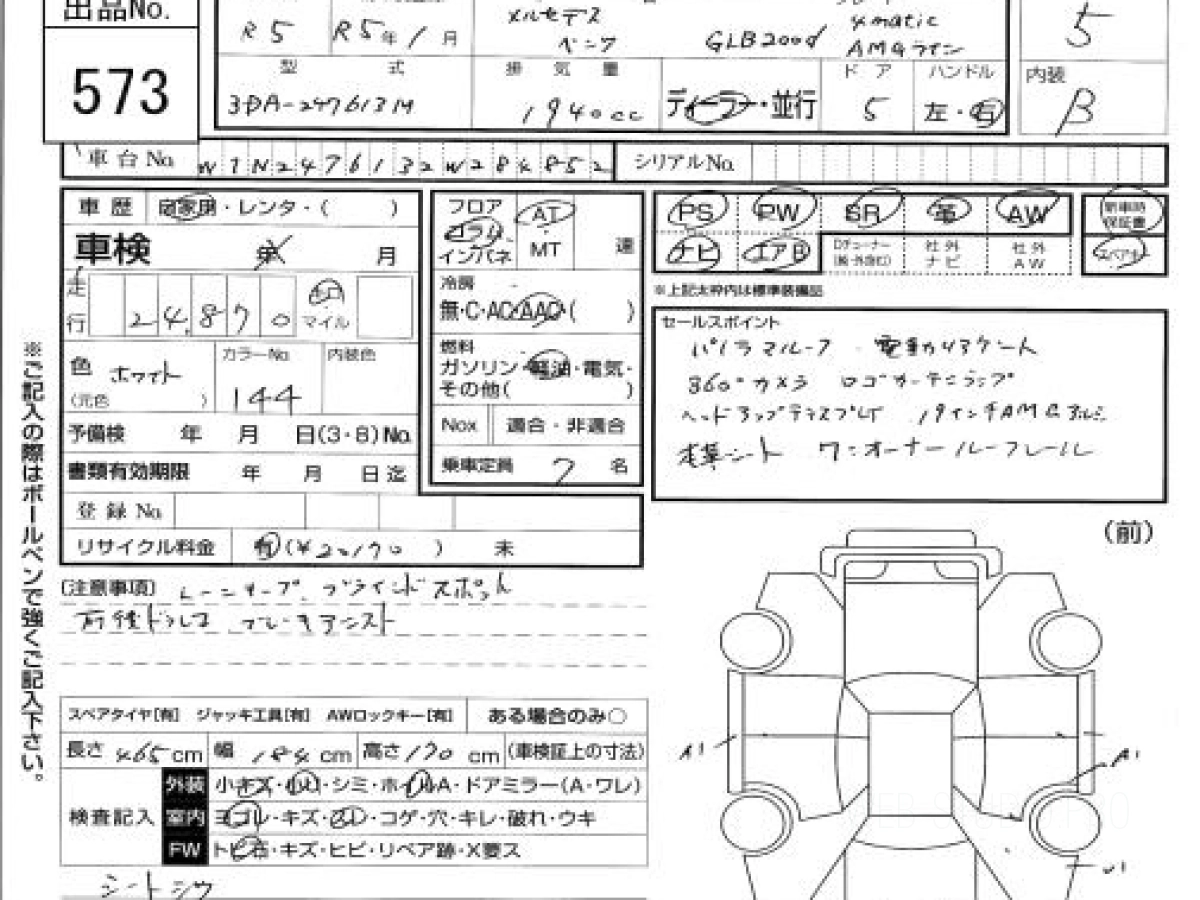 出品No.
573
R5 R5年1月
メルセデス
ベンツ
GLB200d
4matic
AMGライン
5
型式 排気量 ドア ハンドル 内装
3DA-247613M 1940cc ディーラー・並行 5 左・右 B
車台No. W1N2476132W284852 シリアルNo.
車歴 自家用・レンタ・( )
車検 年 月
走行 24,870 キロ マイル
色 ホワイト (元色 ) カラーNo. 144 内装色
予備検 年 月 日(3・8)No.
書類有効期限 年 月 日迄
登録No.
リサイクル料金 有(¥20170 ) 未
フロア コラム インパネ AT MT 速
冷房
無・C・AC・AAC( )
燃料
ガソリン・軽油・電気・
その他( )
Nox 適合・非適合
乗車定員 7 名
PS PW SR 革 AW 新車時保証書
ナビ エアB Dチューナー 社外ナビ 社外AW スペアキー
※上記太枠内は標準装備品
セールスポイント
パノラマルーフ 電動リアゲート
360°カメラ ロゴカーテシランプ
ヘッドアップディスプレイ 19インチAMGアルミ
本革シート ワンオーナー ルーフレール
(注意事項) レーンキープ ブラインドスポット
前後ドラレコ ブレーキアシスト
スペアタイヤ[有] ジャッキ工具[有] AWロックキー[有] ある場合のみ○
長さ 465cm 幅 184cm 高さ 170cm (車検証上の寸法)
検査記入
外装 小キズ・小凹・シミ・ホイルA・ドアミラー(A・ワレ)
室内 ヨゴレ・キズ・スレ・コゲ・穴・キレ・破れ・ウキ
FW トビ石・キズ・ヒビ・リペア跡・X要ス
シートシワ
(前)
A1
A1
W1
※ご記入の際はボールペンで強くご記入下さい。